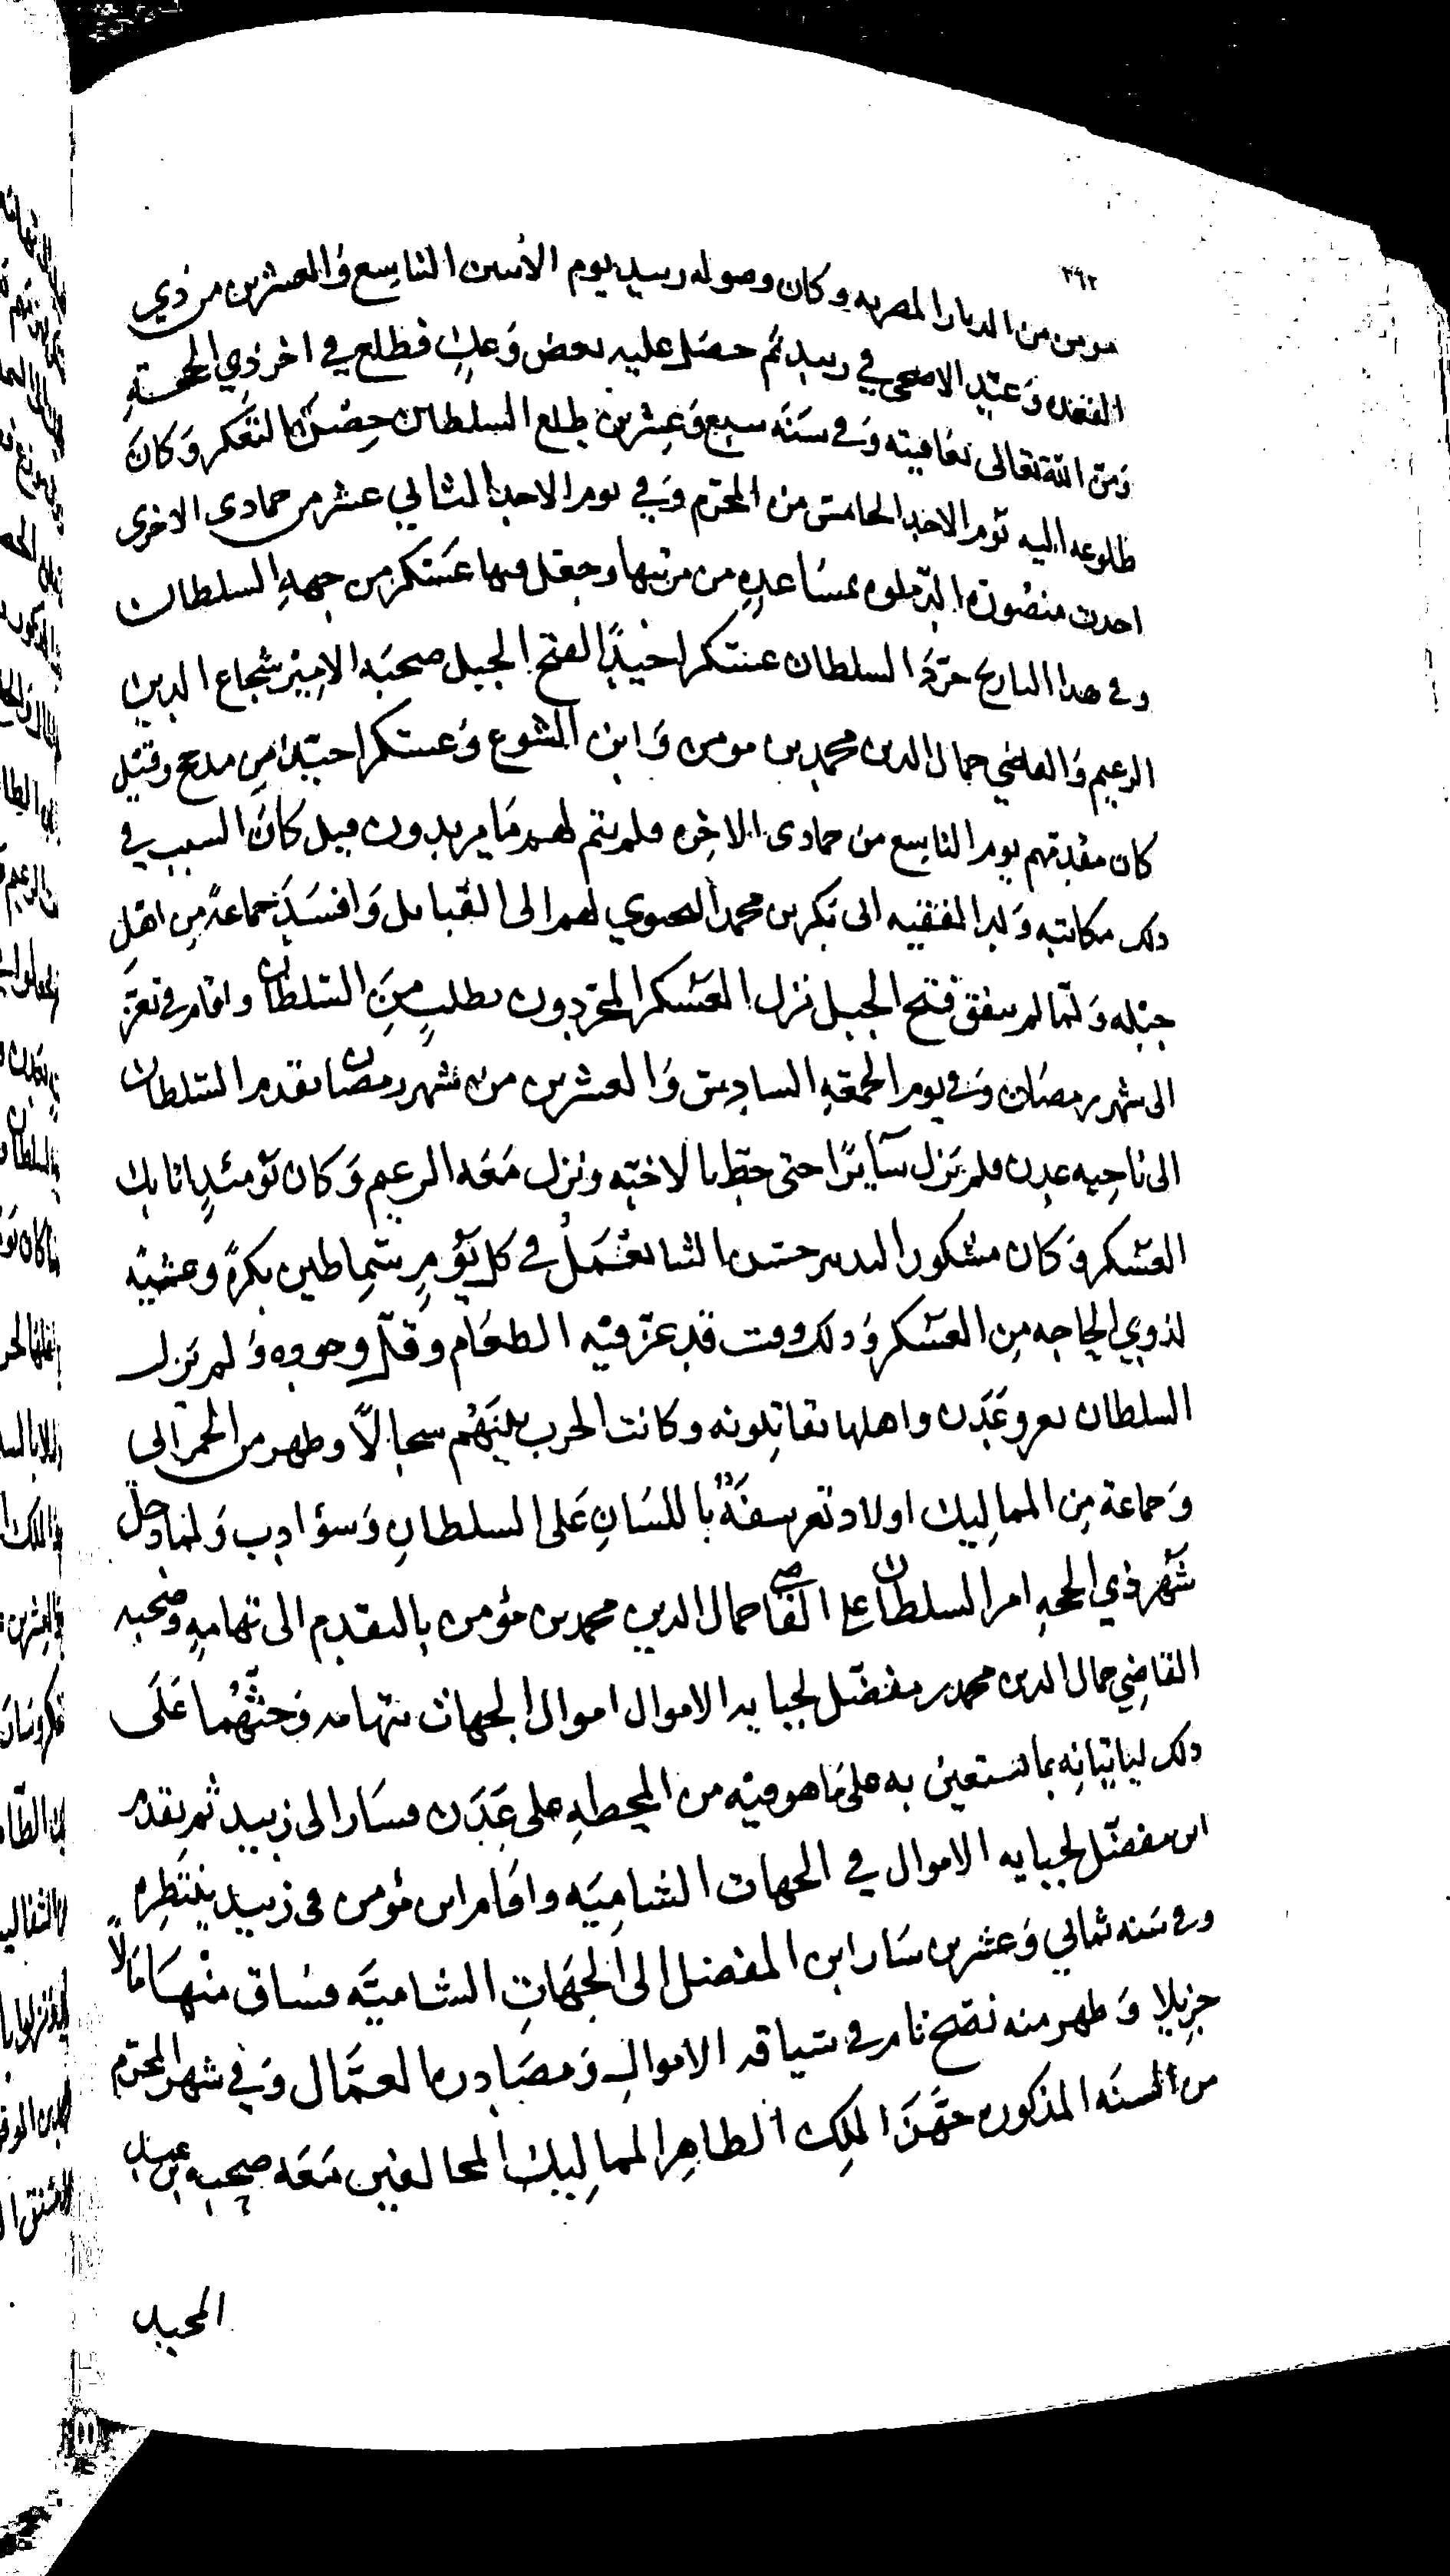 ٣٩٢
مومن من الديار المصريه وكان وصوله زبيد يوم الاثنين التاسع والعشرين من ذي
القعده وعيد الاضحى في زبيد ثم حصل عليه بعض وعك فطلع في اخر ذي الحجة
ومن الله تعالى بعافيته وفي سنة سبع وعشرين طلع السلطان حصن التعكر وكان
طلوعه اليه يوم الاحد الخامس من المحرم وفي يوم الاحد الثاني عشر من جمادى الاخرى
اخذت منصورة الدملوه بمساعدة من مرتبها وجعل فيها عسكر من جهة السلطان
وفي هذا التاريخ جرد السلطان عسكرا جيدا لفتح الجبل صحبه الامير شجاع الدين
الزعيم والقاضي جمال الدين محمد بن مومن وابن الشوع وعسكرا جيدا من مذحج وقيل
كان مقدمهم يوم التاسع من جمادى الاخره فلم يتم لهم ما يريدون قيل كان السبب في
ذلك مكاتبه ولد الفقيه ابي بكر بن محمد اليحيوي لهم الى القبايل وافسد جماعة من اهل
جبله ولما لم يتفق فتح الجبل نزل العسكر المجردون بطلب من السلطان واقام في تعز
الى شهر رمضان وفي يوم الجمعة السادس والعشرين من شهر رمضان تقدم السلطان
الى ناحيه عدن فلم يزل سآيرا حتى حط بالاخبه ونزل معه الزعيم وكان يومئذ اتابك
العسكر وكان مشكور التدبير حسن الثنا يعمل في كل يوم سماطين بكرة وعشيه
لذوي الحاجه من العسكر وذلك وقت قد عز فيه الطعام وقل وجوده ولم يزل
السلطان يغزو عدن واهلها يقاتلونه وكانت الحرب بينهم سجالا وظهر من الجمرالي
وجماعة من المماليك اولاد تعز سفه باللسان على السلطان وسؤ ادب ولما دخل
شهر ذي الحجه امر السلطان على القاضي جمال الدين محمد بن مؤمن بالتقدم الى تهامه وصحبه
القاضي جمال الدين محمد بن مفضل لجبايه الاموال اموال الجهات تهامه وحثهما على
ذلك لياتيانه بما يستعين به على ما هو فيه من المحطه على عدن فسارا الى زبيد ثم تقدم
ابن مفضل لجبايه الاموال في الجهات الشاميه واقام ابن مؤمن في زبيد ينتظره
وفي سنه ثماني وعشرين سار ابن المفضل الى الجهات الشاميه فساق منها مالا
جزيلا وظهر منه نصح تام في سياقه الاموال ومصادره العمال وفي شهر المحرم
من السنه المذكوره جهز الملك الظاهر المماليك المخالفين معه صحبه ابن عبد
المجيد